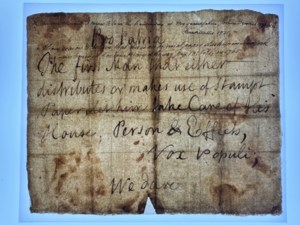 Pro Patria
The first Man that either
distributes or makes use of Stampt
Paper let him take Care of his
House, Person & Effects,
Vox Populi;
We dare